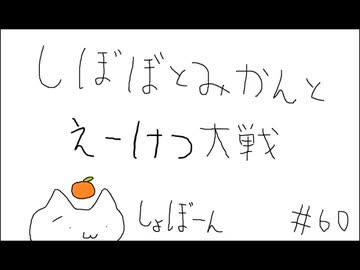 しぼぼとみかんと
えーけつ大戦
しょぼーん
#60